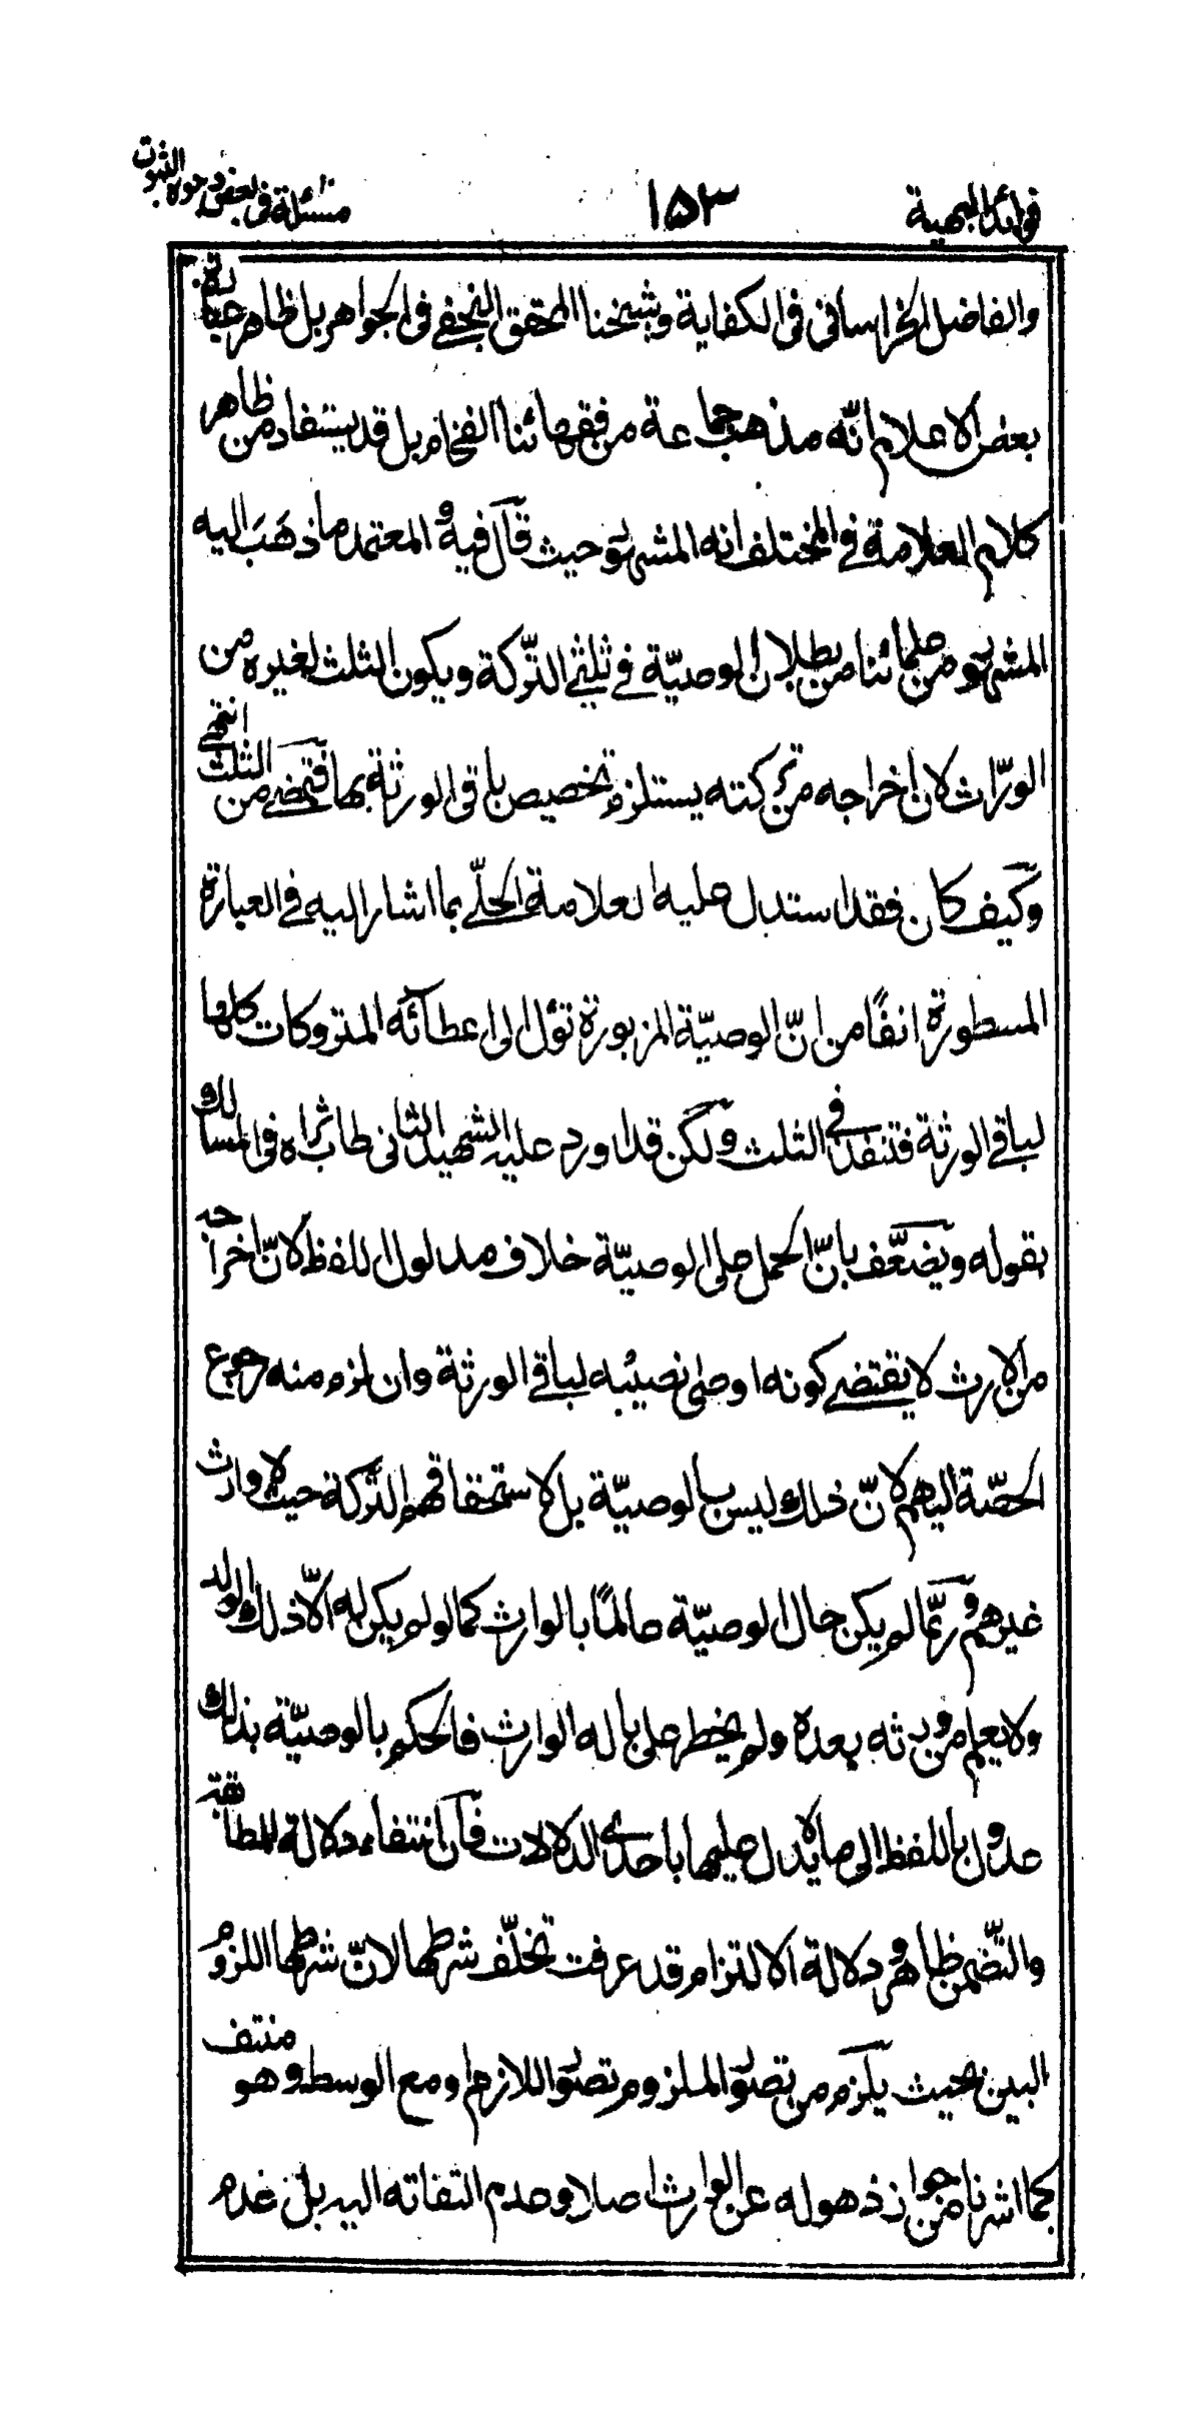 فوائد البهية
١٥٣
مسئلة فى بعض وجوه الثبوت
والفاضل الخراسانى فى الكفاية وشيخنا المحقق النجفى فى الجواهر بل ظاهر عبارة
بعض الاعلام انّه مذهب جماعة من فقهائنا الفخام بل قد يستفاد من ظاهر
كلام العلامة فى المختلف انه المشهور حيث قال فيه و المعتمد ما ذهَبَ اليه
المشهور من علمائنا من بطلان الوصيّة فى ثلثى التّركة ويكون الثلث لغيره من
الورّاث لان اخراجه من تركته يستلزم تخصيص باقى الورثة بها فتمضى من الثلث انتهى
وكيف كان فقد استدل عليه العلامة الحلّى بما اشار اليه فى العبارة
المسطورة انفًا من انّ الوصيّة المزبورة تؤل الى اعطائه المتروكات كلها
لباقى الورثة فتنفذ فى الثلث ولكن قد اورد عليه الشهيد الثانى طاب ثراه فى المسالك
بقوله ويضعّف بانّ الحمل على الوصيّة خلاف مدلول اللفظ لانّ اخراجه
من الارث لا يقتضى كونه اوصى نصيبه لباقى الورثة وان لزم منه رجوع
الحصّة اليهم لانّ ذلك ليس بالوصيّة بل لاستحقاقهم التّركة حيث لا وارث
غيرهم و ربّما لم يكن حال الوصيّة عالمًا بالوارث كما لو لم يكن له الّا ذلك الولد
ولا يعلم من يرثه بعده ولم يخطر على باله الوارث فالحكم بالوصيّة بذلك
عدول باللفظ الى ما لا يدل عليها باحدى الدلالات فان انتفاء دلالة المطابقة
والتّضمن ظاهر و دلالة الالتزام قد عرفت تخلّف شرطها لانّ شرطها اللزوم
البين بحيث يلزم من تصوّر الملزوم تصوّر اللازم او مع الوسط وهو منتف
كما اشرنا من جواز ذهوله عن الوارث اصلا وعدم التفاته اليه بل عدم